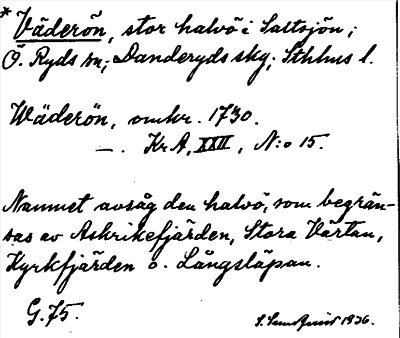 * Väderön, stor halvö i Saltsjön;
Ö. Ryds sn; Danderyds skg; Sthlms l.
Wäderön, omkr. 1730.
—. Kr A, XXII, N:o 15.
Namnet avsåg den halvö, som begrän-
sas av Askrikefjärden, Stora Värtan,
Kyrkfjärden o. Långsläpan.
G. 75.
S. Sundquist 1936.